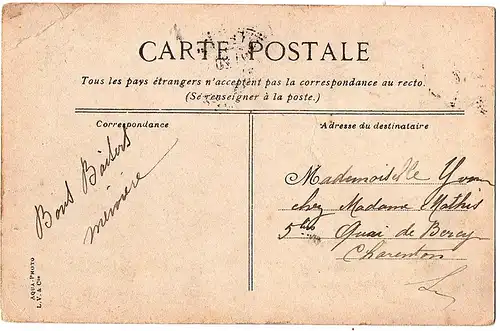 CARTE POSTALE
Tous les pays étrangers n'acceptent pas la correspondance au recto.
(Se renseigner à la poste.)
Correspondance
Bons Baisers
mémère
Adresse du destinataire
Mademoiselle
chez Madame Mathis
Quai de Bercy
Charenton
AQUA-PHOTO
L.V. & Cie